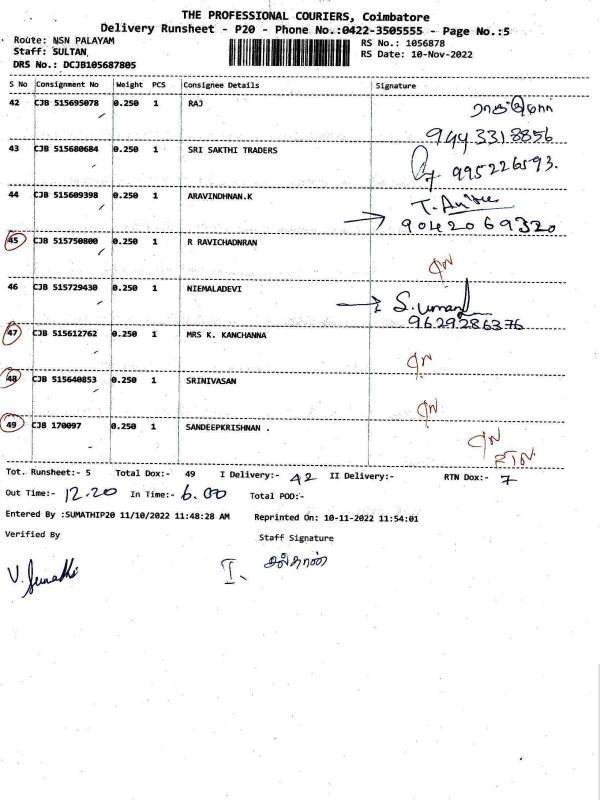 THE PROFESSIONAL COURIERS, Coimbatore
Delivery Runsheet - P20 - Phone No.:0422-3505555 - Page No.:5
Route: NSN PALAYAM RS No.: 1056878
Staff: SULTAN, RS Date: 10-Nov-2022
DRS No.: DCJB105687805
S No Consignment No Weight PCS Consignee Details Signature
42 CJB 515695078 0.250 1 RAJ
944 331 8856
43 CJB 515680684 0.250 1 SRI SAKTHI TRADERS
995226593.
44 CJB 515609398 0.250 1 ARAVINDHNAN.K
9042069320
45 CJB 515750800 0.250 1 R RAVICHADNRAN
46 CJB 515729430 0.250 1 NIEMALADEVI S.uman
9629286376
47 CJB 515612762 0.250 1 MRS K. KANCHANNA
48 CJB 515640853 0.250 1 SRINIVASAN
49 CJB 170097 0.250 1 SANDEEPKRISHNAN .
Tot. Runsheet:- 5 Total Dox:- 49 I Delivery:- 42 II Delivery:- RTN Dox:- 7
Out Time:- 12.20 In Time:- 6.00 Total POD:-
Entered By :SUMATHIP20 11/10/2022 11:48:28 AM Reprinted On: 10-11-2022 11:54:01
Verified By Staff Signature
I. சுல்தான்